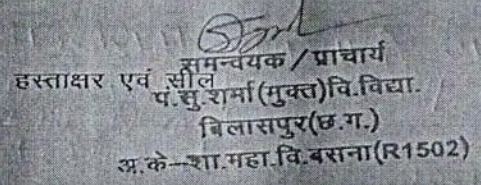 समन्वयक / प्राचार्य
हस्ताक्षर एवं सील
पं.सु.शर्मा(मुक्त)वि.विद्या.
बिलासपुर(छ.ग.)
अ.के–शा.महा.वि.बसना(R1502)